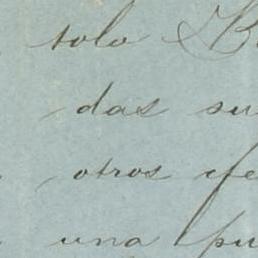 solo
das su
otros efe
una pu